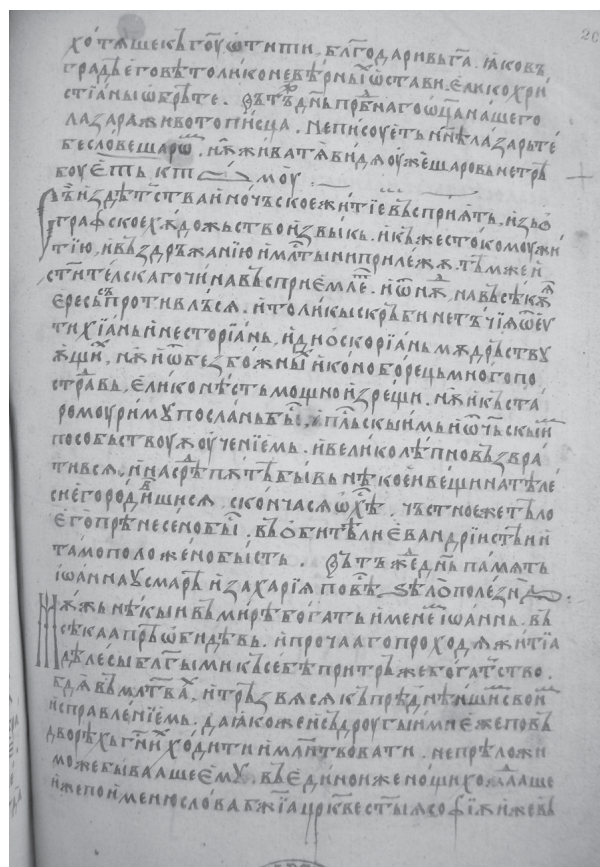 хотѧщек гоу ѿтити. благодаривь га. ꙗковъ
градь его вѣ толико невѣрны ѿстави. елико хри
стіаны ѡбрѣте. Въ тъ днь прѣбнаго ѡца нашего
лазара животописца. не писоуеть ннѣ лазарь те
бе слове шарѡ.
Въ издѣтства иночьское житїе въспрїѧть. изьо
графское хѫдожьство извыкь. и къ жестокомоу жи
тїю, и въздръжанїю и млтыни прилежѧ. тѣмже и
стительскаго чина въспрїемле. и ѿ нѫ на въсѣкѫ
ересь противлъсѧ. и толикы скръби не тъчїѫ ѿ еѵ
тихїань и несторїань, и дїоскорїань мѫдрьству
ѫщи, нѫ и ѿ безбожны иконоборець много по
страдавь. елико нѣсть мощно изрещи. нѫ и къ ста
ромоу риму послань бы. апльскыимь и ѿчьскыи
пособьствоуѫ оученїемь. и великолѣпно възвра
тивсѧ. и на срѣ пѫтѣ бывь нѣкоен вещи на телѣ
си его родившисѧ, скончасѧ ѡ хѣ. чьстное же тѣло
его прѣнесено бы. въ обитѣли еѵандрїистѣи и
тамо положено бысть. Въ тъже днь памѧть
іѡанна усмарѣ и захарїѧ повѣ ѕѣло полезна.
Мѫжь нѣкыи въ мирѣ богать именемь іѡаннь. въ
сѣкаа прѣѡбидѣвь. и прочаа го проходѧ житїа
дѣлесы блгыми къ себѣ притръже богатство.
бдѧ въ млтва, и трѣзвѧсѧ къ прѣднѣишїи свои
исправленїемь. даꙗкоже и съ дроугыими еже по въ
дворѣхъ гни ходити и млитвовати. непрѣложи
може бывааше ему. въ единоиже нощи хождааше
иже по именю слова бжїа црквестыѧ софїѫ иже въ